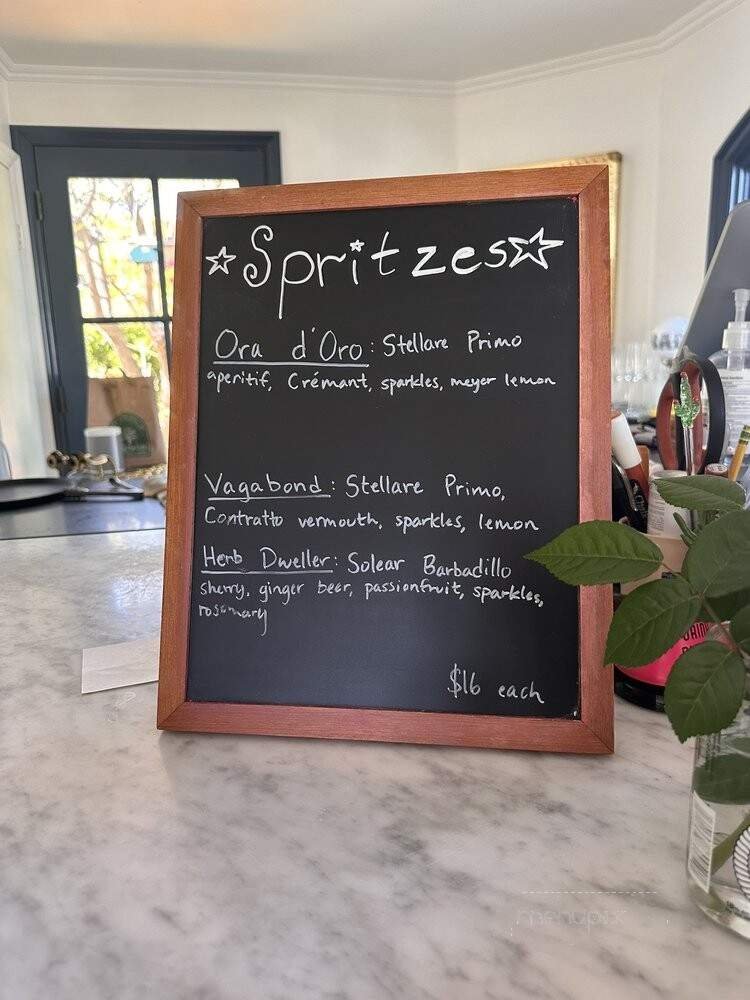 ☆Spritzes☆
Ora d'Oro: Stellare Primo
aperitif, Crémant, sparkles, meyer lemon
Vagabond: Stellare Primo,
Contratto vermouth, sparkles, lemon
Herb Dweller: Solear Barbadillo
sherry, ginger beer, passionfruit, sparkles,
rosemary
$16 each
menupix